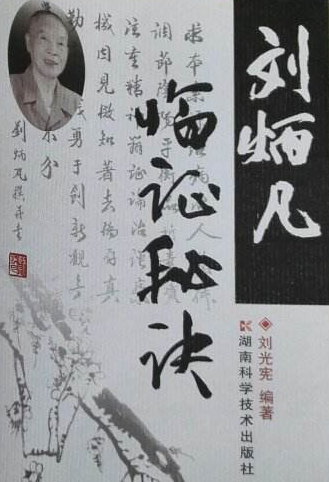 刘炳凡
临证秘诀
刘光宪 编著
湖南科学技术出版社
求本
调节阴阳平衡
注重精神 辨证论治
机因见微知著去伪存真
勇于创新
刘炳凡撰并书